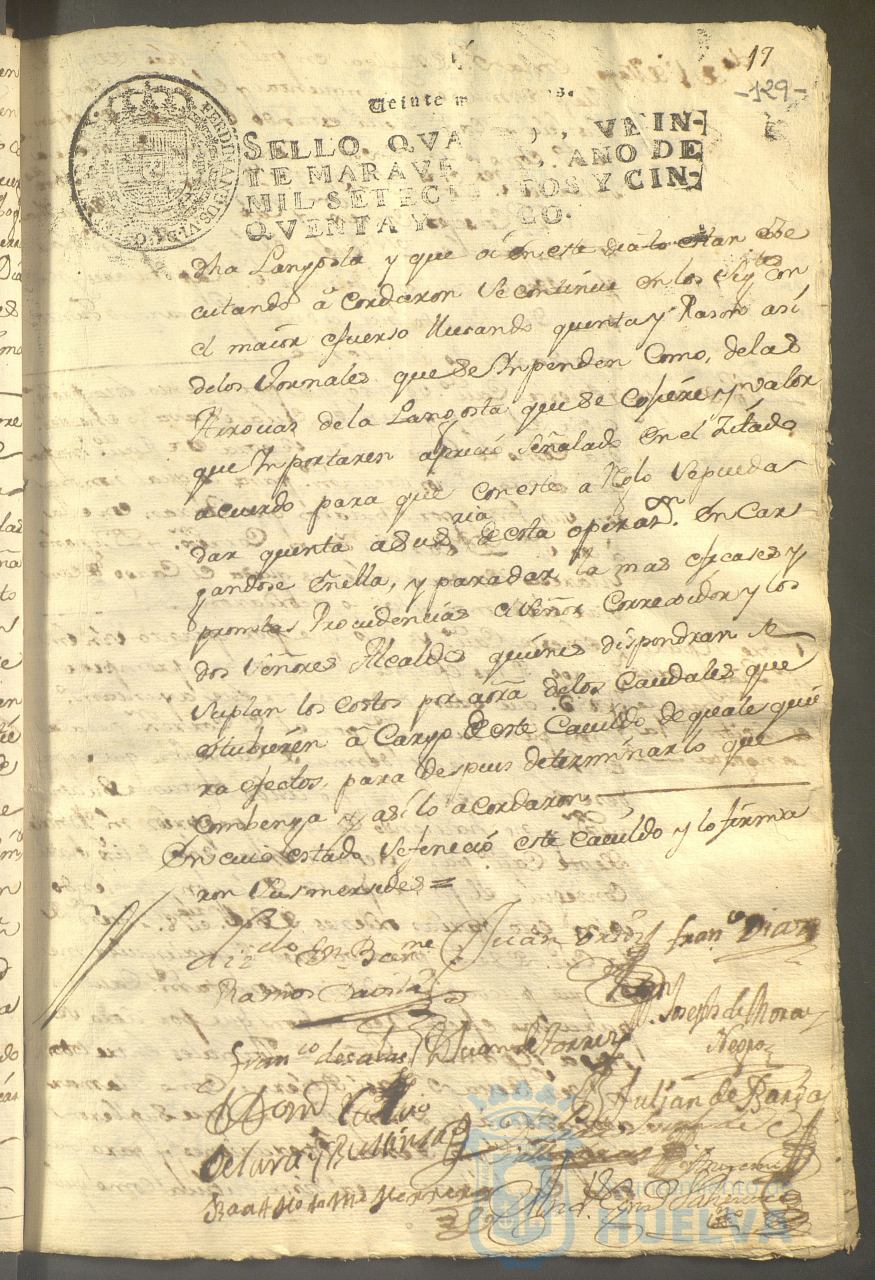 17
-129-
Veinte m s.
SELLO QVA , VEIN-
TE MARAVE , AÑO DE
MIL SETECI TOS Y CIN-
QVENTA Y CO.
FERDINANDUS VI D G
dha Langosta y que si en esta dia lo estan exe
cutando acordaron se continue en los sigtes con
el maior esfuerso llevando quenta y Rason asi
delos Jornales que se Inpenden Como, delas
Arrovas de la Langosta que se cojiere y valor
que Inportaren a precio señalado en el Zitado
acuerdo para que con este a Reglo se pueda
dar quenta a su sria de esta operazn. En Car-
gandose en ella, y para dar la mas eficases y
promtas Providencias el señor Corregidor y los
dos señores Alcaldes quienes dispondran se
suplan los costos por aora delos Caudales que
estubieren a Cargo de este Cavildo de quales quie
ra efectos, para despues determinar lo que
Combenga y asi lo acordaron
En cuio estado se fenecio este Cavildo y lo firma
ron sus mersedes =
Lizdo Dn Barme
Juan
Franco Diaz
Ramos Dacosta
Joseph de Mora
Negro
Franco de salas
Juan de Torres
Julian de Barba
Don
de Lara y
Herrero
Ayuntamiento de
HUELVA